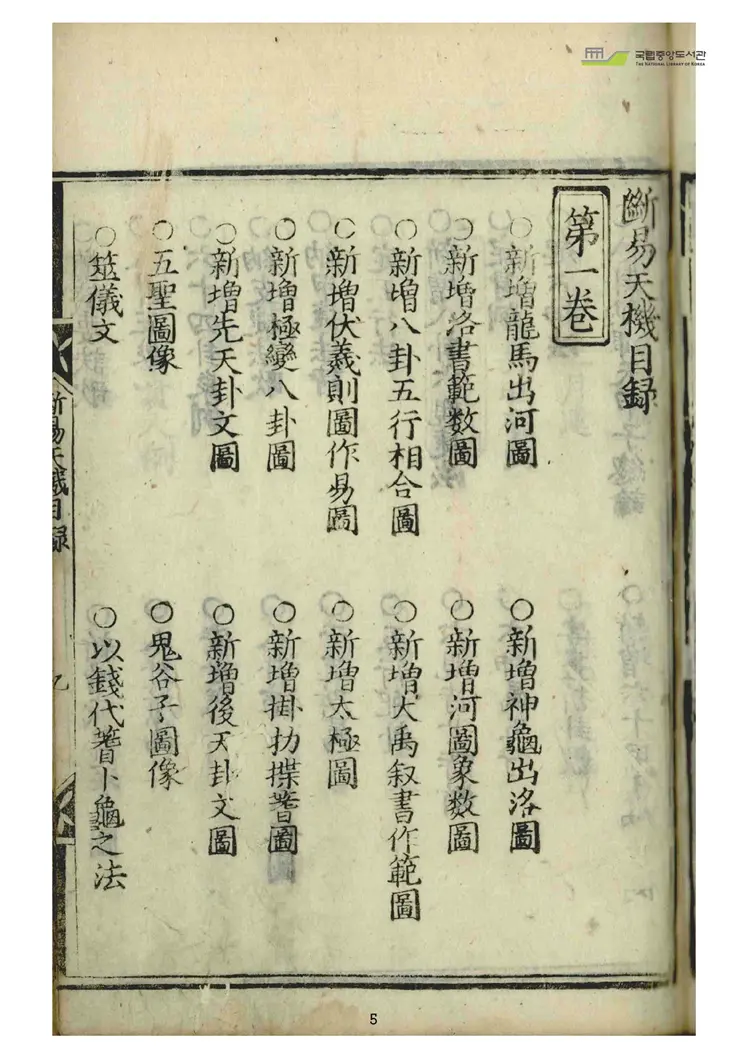 국립중앙도서관
THE NATIONAL LIBRARY OF KOREA
斷易天機目録
第一卷
○新增龍馬出河圖
○新增神龜出洛圖
○新增洛書範数圖
○新增河圖象数圖
○新增八卦五行相合圖
○新增大禹叙書作範圖
○新增伏羲則圖作易圖
○新增太極圖
○新增極變八卦圖
○新增掛扐揲蓍圖
○新增先天卦文圖
○新增後天卦文圖
○五聖圖像
○鬼谷子圖像
○筮儀文
○以錢代蓍卜龜之法
新易天機目録
5